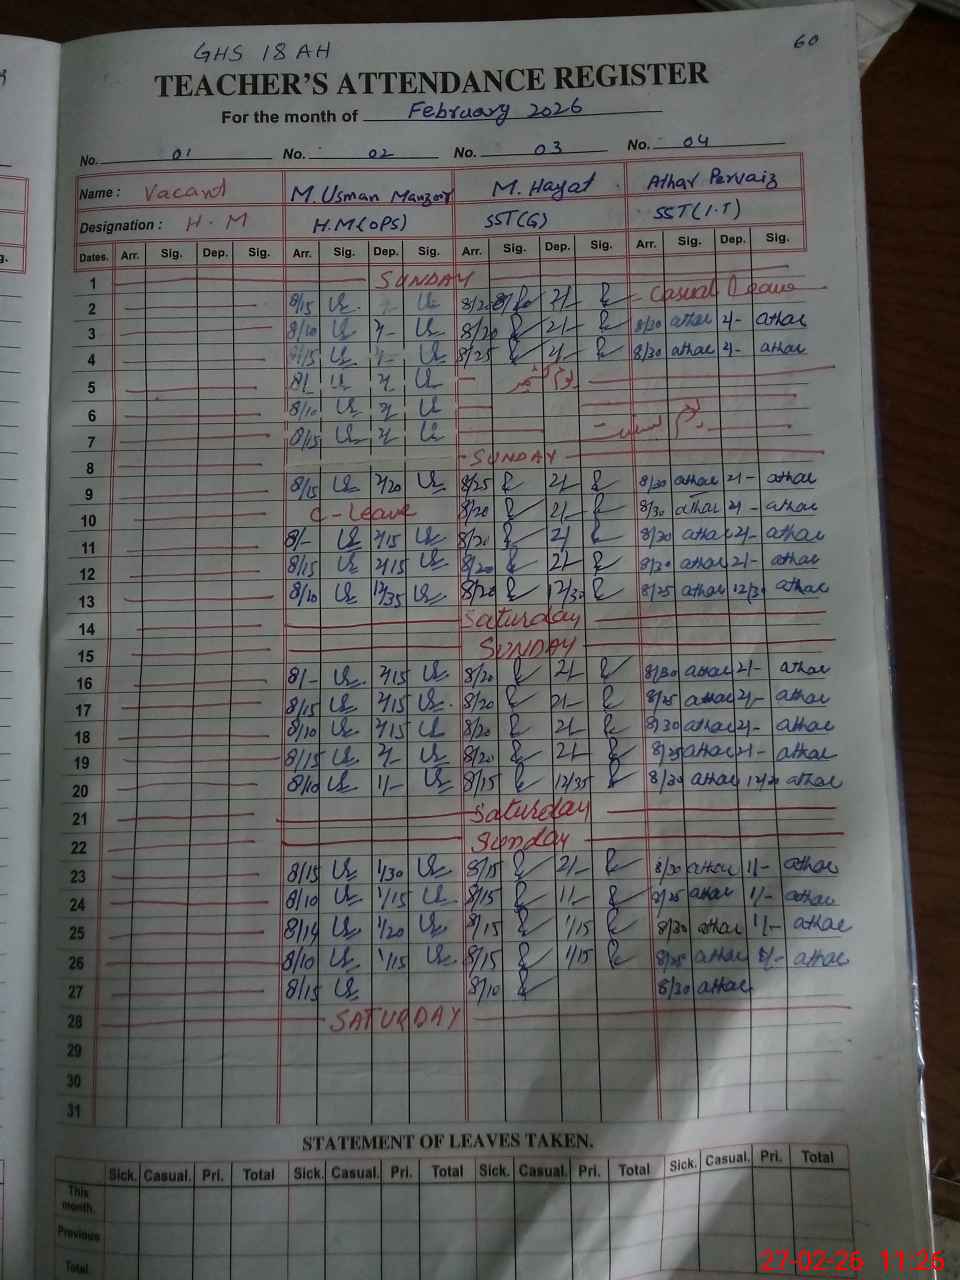 GHS 18 AH
60
TEACHER'S ATTENDANCE REGISTER
For the month of February 2026
No. 01 No. 02 No. 03 No. 04
Name : Vacant M. Usman Manzoor M. Hayat Athar Pervaiz
Designation : H-M H.M(OPS) SST(G) SST(I.T)
Dates. Arr. Sig. Dep. Sig. Arr. Sig. Dep. Sig. Arr. Sig. Dep. Sig. Arr. Sig. Dep. Sig.
1 SUNDAY
2 8/15 8/20 2/- Casual Leave
3 8/10 8/20 2/- 8/30 athar 2/- athar
4 8/15 8/25 2/- 8/30 athar 2/- athar
5 یوم کشمیر
6 8/10
7 8/15
8 SUNDAY
9 8/15 2/20 8/25 2/- 8/30 athar 2/- athar
10 C-Leave 8/20 2/- 8/30 athar 2/- athar
11 8/- 2/15 8/20 2/- 8/20 athar 2/- athar
12 8/15 2/15 8/20 2/- 8/20 athar 2/- athar
13 8/10 12/35 8/20 12/30 8/25 athar 12/30 athar
14 Saturday
15 SUNDAY
16 8/- 2/15 8/20 2/- 8/30 athar 2/- athar
17 8/15 2/15 8/20 2/- 8/25 athar 2/- athar
18 8/10 2/15 8/20 2/- 8/30 athar 2/- athar
19 8/15 8/20 2/- 8/25 athar 2/- athar
20 8/10 1/- 8/15 12/35 8/30 athar athar
21 Saturday
22 Sunday
23 8/15 1/30 8/15 2/- 8/30 athar 1/- athar
24 8/10 1/15 8/15 1/- 8/25 athar 1/- athar
25 8/14 1/20 8/15 1/15 8/30 athar 1/- athar
26 8/10 1/15 8/15 1/15 8/25 athar athar
27 8/15 8/10 8/30 athar
28 SATURDAY
29
30
31
STATEMENT OF LEAVES TAKEN.
Sick. Casual. Pri. Total Sick. Casual. Pri. Total Sick. Casual. Pri. Total Sick. Casual. Pri. Total
This month.
Previous
Total.
27-02-26 11:26